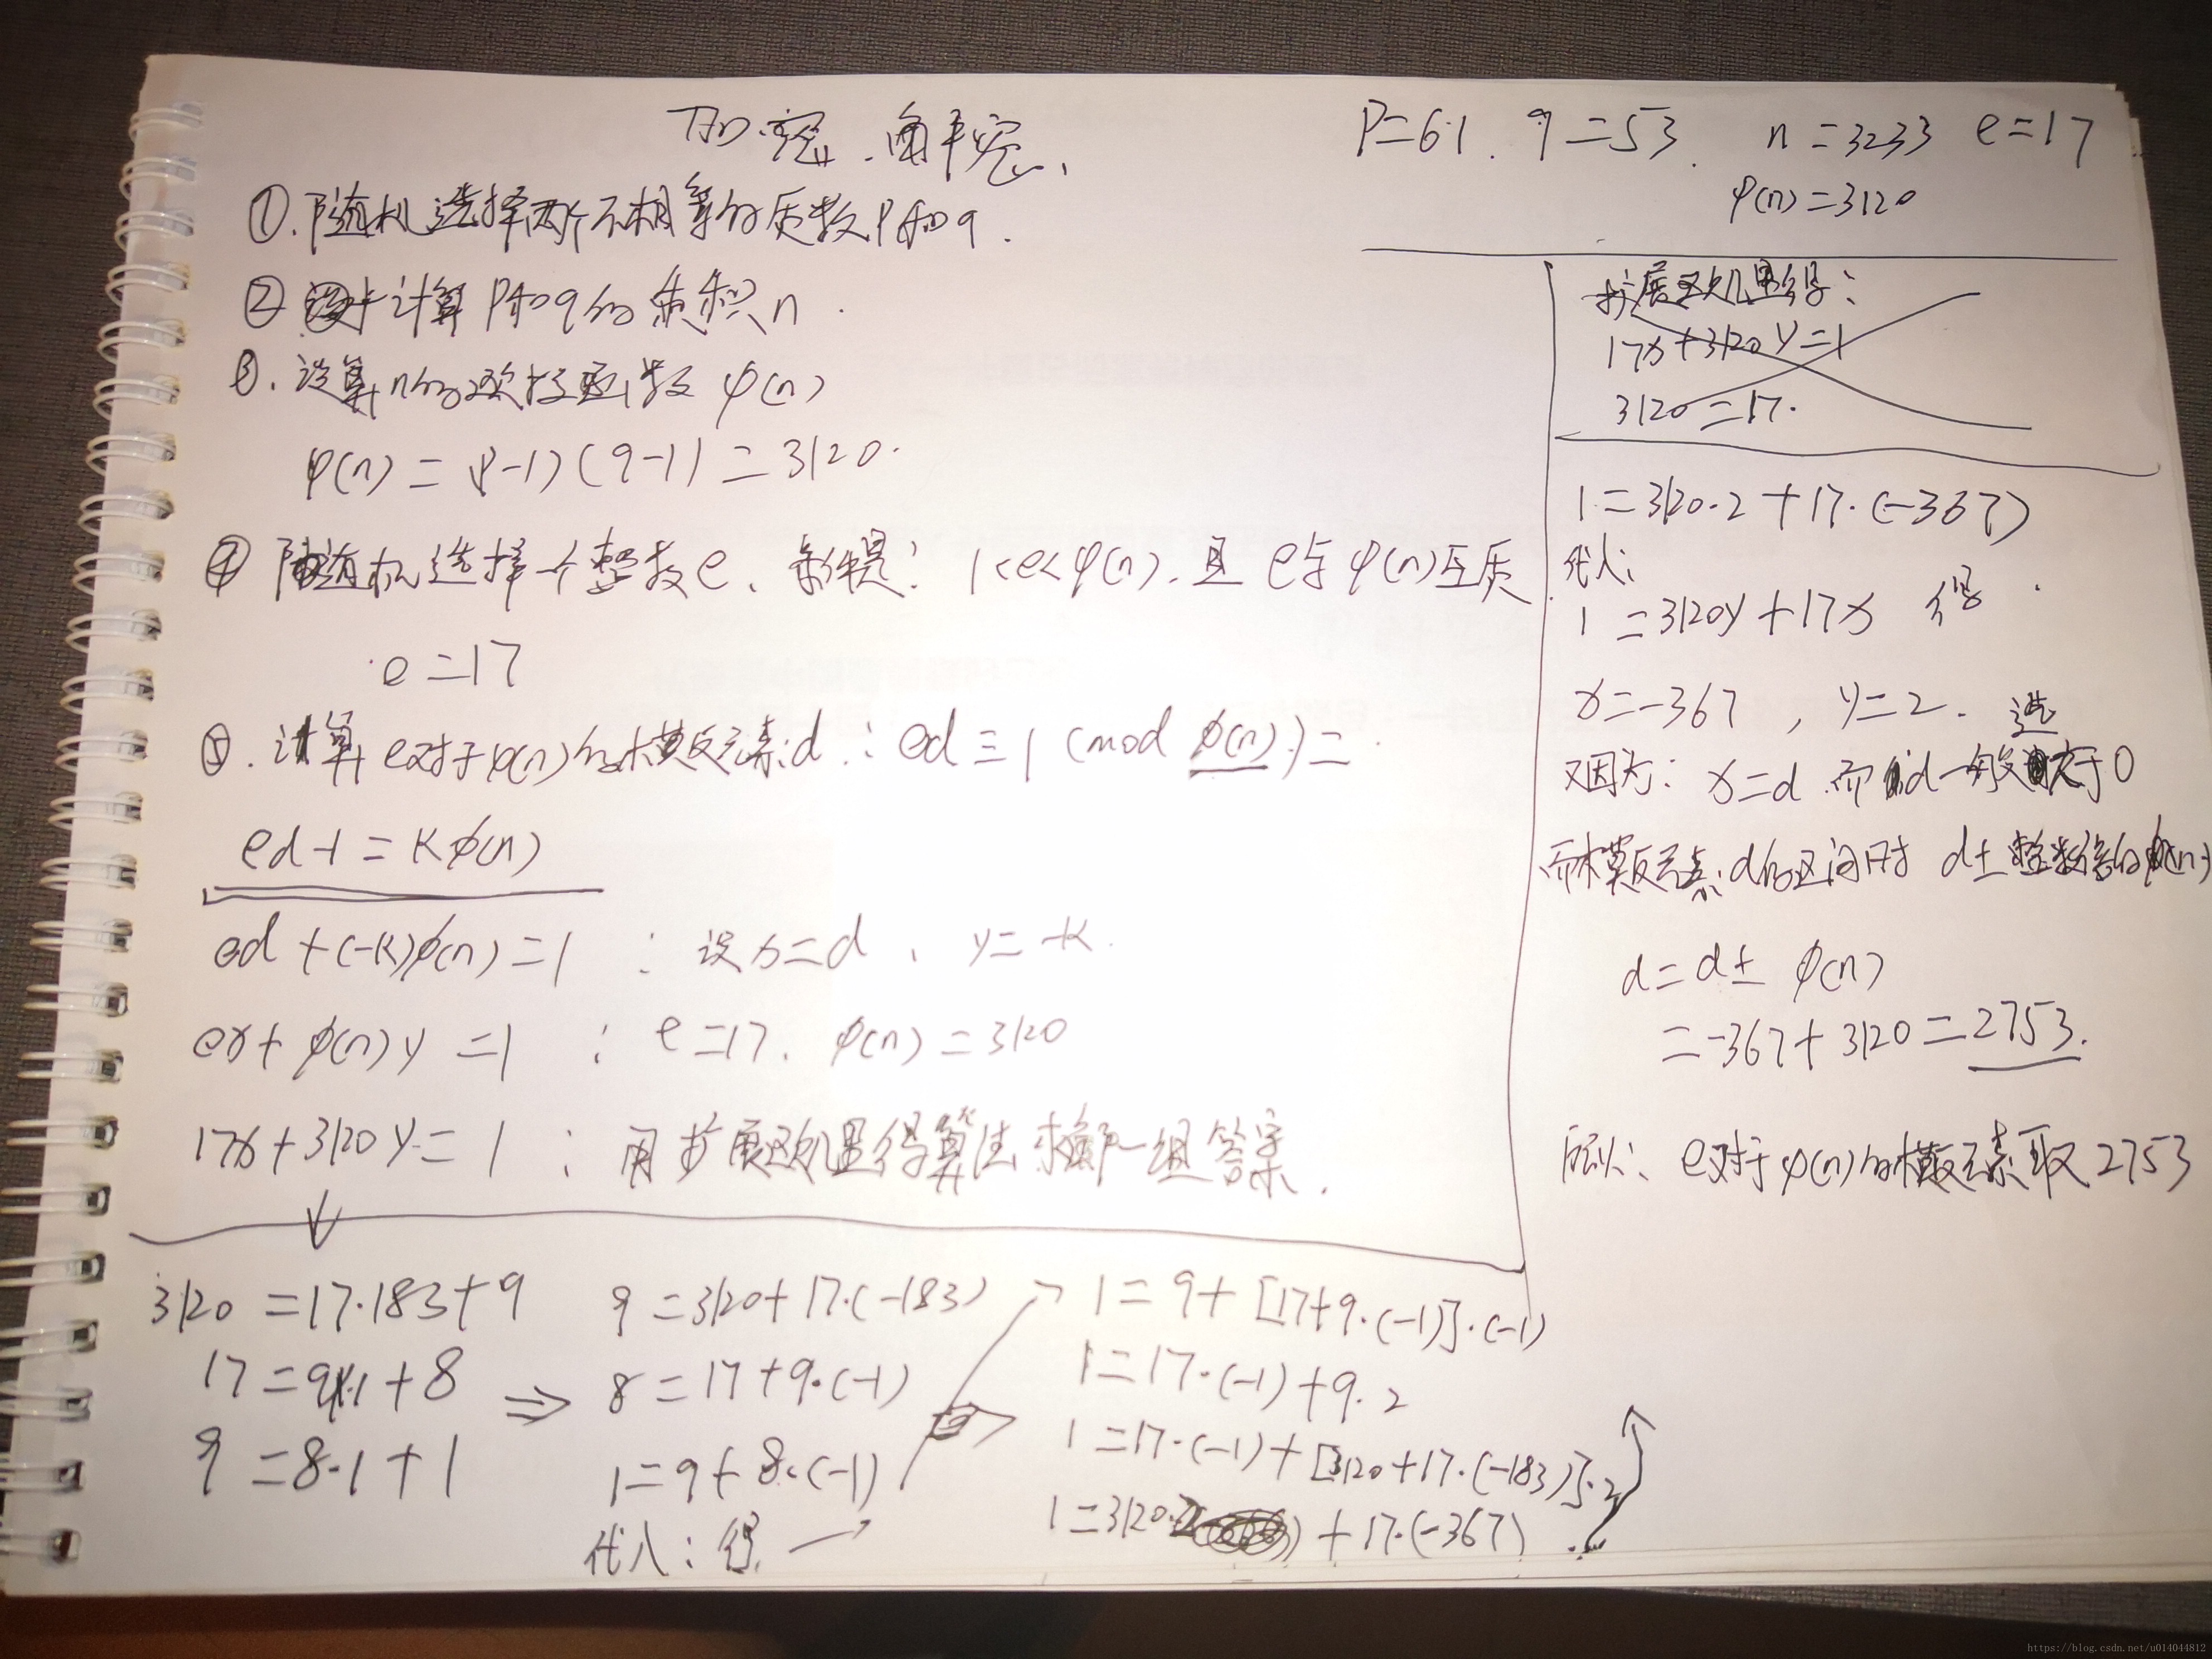 加密、解密、
P=61. q=53. n=3233 e=17
φ(n)=3120
①.随机选择两个不相等的质数P和q.
② 计算P和q的乘积n.
③.计算n的欧拉函数 φ(n)
φ(n) = (P-1)(q-1) = 3120.
④ 随机选择一个整数e、条件是: 1<e<φ(n).且 e与φ(n)互质
e=17
⑤.计算e对于φ(n)的模反元素d : ed≡1 (mod φ(n))=
ed-1=Kφ(n)
ed+(-K)φ(n)=1 : 设x=d、y=-K.
ex+φ(n)y=1 : e=17. φ(n)=3120
17x+3120y=1 : 用扩展欧几里得算法求解一组答案.
3120=17·183+9
17=9·1+8
9=8·1+1
⇒
9=3120+17·(-183)
8=17+9·(-1)
1=9+8·(-1)
代入:得
1=9+[17+9·(-1)]·(-1)
1=17·(-1)+9·2
1=17·(-1)+[3120+17·(-183)]·2
1=3120·2+17·(-367)
扩展欧几里得:
17x+3120y=1
3120=17.
1=3120·2+17·(-367)
代入:
1=3120y+17x 得
x=-367, y=2.
又因为: x=d 而d一般选大于0
而模反元素d的区间时 d±整数倍的φ(n)
d=d±φ(n)
=-367+3120=2753.
所以: e对于φ(n)的模反元素取2753
https://blog.csdn.net/u014044812